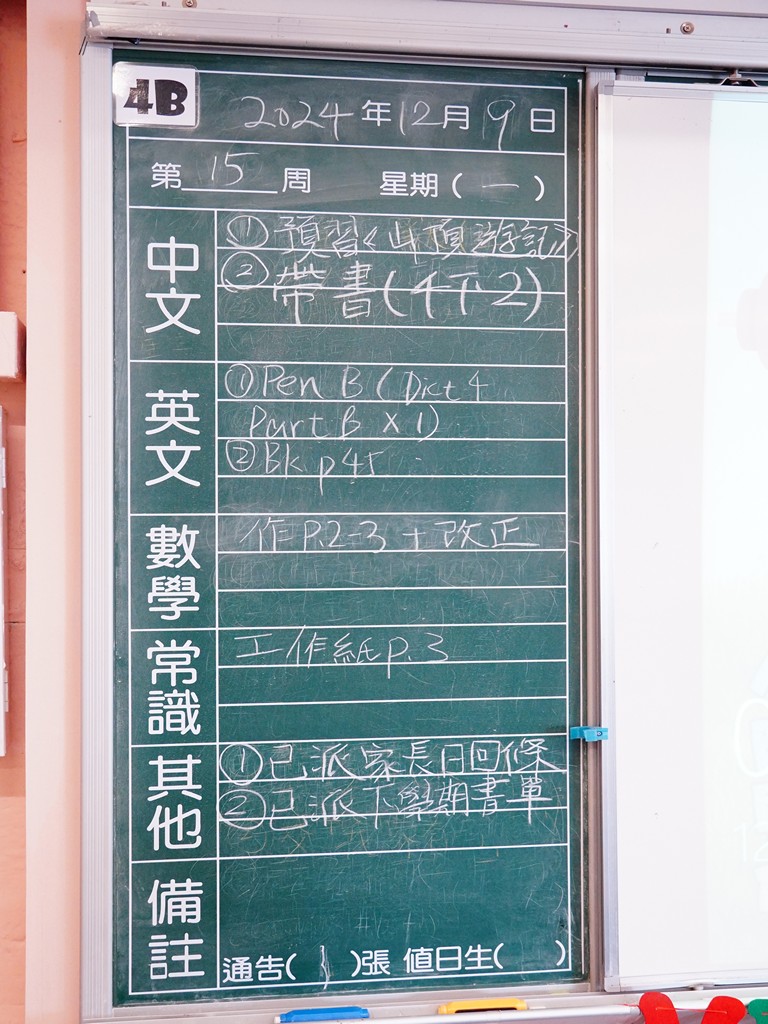 4B
2024年12月9日
第15周 星期(一)
中文
①預習《山頂遊記》
②帶書(4下2)
英文
①Pen B (Dict 4
Part B × 1)
②Bk p45
數學
作P.2-3 + 改正
常識
工作紙p.3
其他
①已派家長日回條
②已派下學期書單
備註
通告( )張 值日生( )